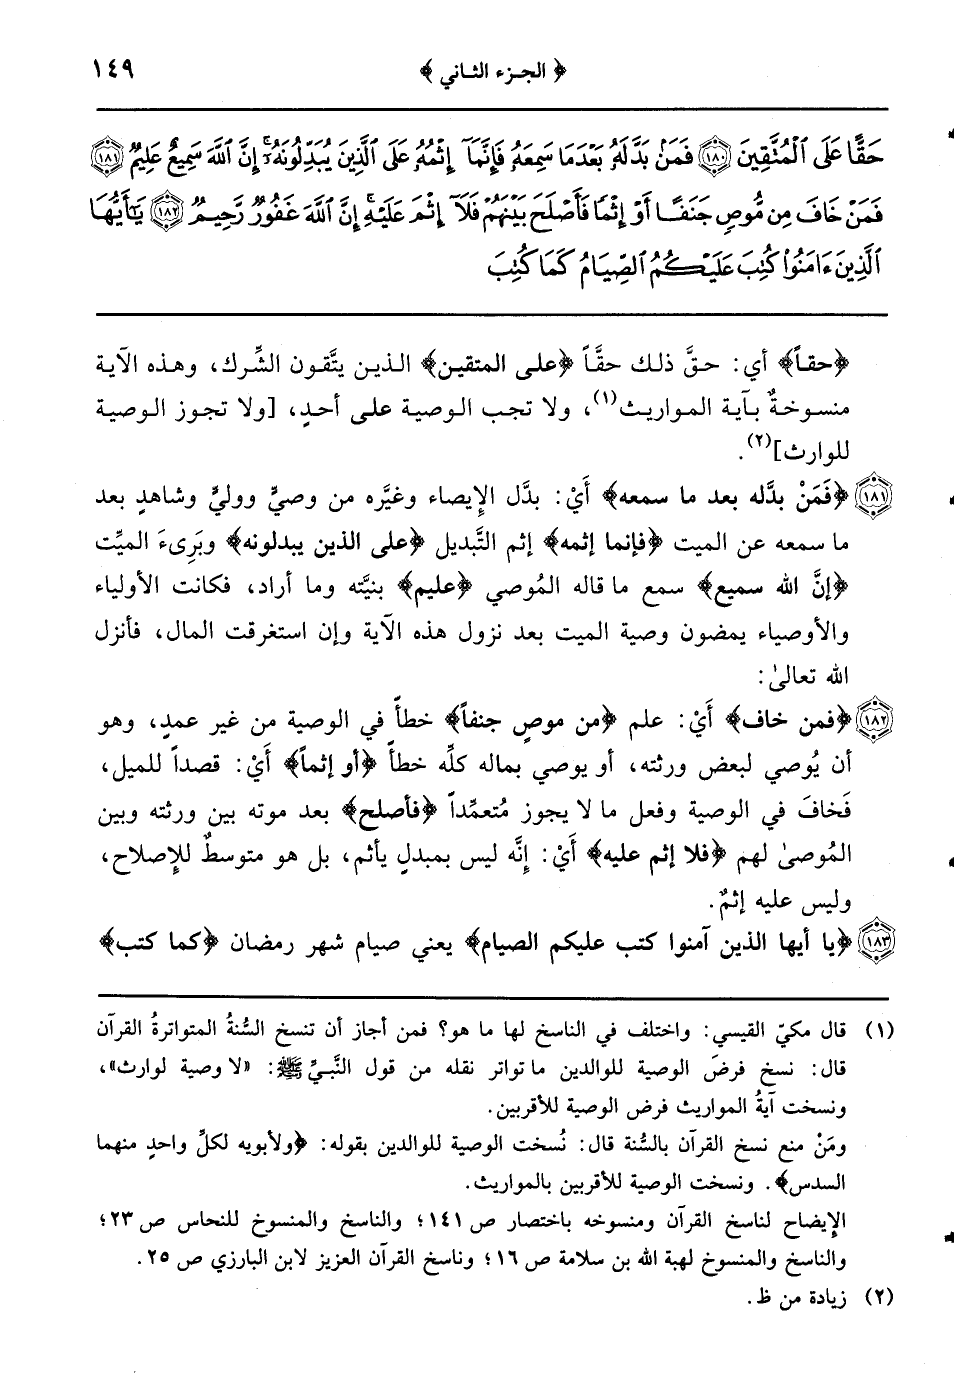 ﴿ الجزء الثاني ﴾ ١٤٩
حَقًّا عَلَى ٱلْمُتَّقِينَ ﴿١٨٠﴾ فَمَنۢ بَدَّلَهُۥ بَعْدَمَا سَمِعَهُۥ فَإِنَّمَآ إِثْمُهُۥ عَلَى ٱلَّذِينَ يُبَدِّلُونَهُۥٓ ۚ إِنَّ ٱللَّهَ سَمِيعٌ عَلِيمٌ ﴿١٨١﴾
فَمَنْ خَافَ مِن مُّوصٍ جَنَفًا أَوْ إِثْمًا فَأَصْلَحَ بَيْنَهُمْ فَلَآ إِثْمَ عَلَيْهِ ۚ إِنَّ ٱللَّهَ غَفُورٌ رَّحِيمٌ ﴿١٨٢﴾ يَٰٓأَيُّهَا
ٱلَّذِينَ ءَامَنُوا۟ كُتِبَ عَلَيْكُمُ ٱلصِّيَامُ كَمَا كُتِبَ
﴿حقاً﴾ أي: حقَّ ذلك حقَّاً ﴿على المتقين﴾ الذين يتَّقون الشِّرك، وهذه الآية
منسوخةٌ بآية المواريث(١)، ولا تجب الوصية على أحدٍ، [ولا تجوز الوصية
للوارث](٢).
﴿١٨١﴾ ﴿فَمَنْ بدَّله بعد ما سمعه﴾ أَيْ: بدَّل الإِيصاء وغيَّره من وصيٍّ ووليٍّ وشاهدٍ بعد
ما سمعه عن الميت ﴿فإنما إثمه﴾ إثم التَّبديل ﴿على الذين يبدلونه﴾ وبَرِىءَ الميِّت
﴿إنَّ الله سميع﴾ سمع ما قاله المُوصي ﴿عليم﴾ بنيَّته وما أراد، فكانت الأولياء
والأوصياء يمضون وصية الميت بعد نزول هذه الآية وإن استغرقت المال، فأنزل
الله تعالىٰ:
﴿١٨٢﴾ ﴿فمن خاف﴾ أَيْ: علم ﴿من موصٍ جنفاً﴾ خطأً في الوصية من غير عمدٍ، وهو
أن يُوصي لبعض ورثته، أو يوصي بماله كلِّه خطأً ﴿أو إثماً﴾ أَيْ: قصداً للميل،
فَخافَ في الوصية وفعل ما لا يجوز مُتعمِّداً ﴿فأصلح﴾ بعد موته بين ورثته وبين
المُوصىٰ لهم ﴿فلا إثم عليه﴾ أَيْ: إنَّه ليس بمبدلٍ يأثم، بل هو متوسطٌ للإِصلاح،
وليس عليه إثمٌ.
﴿١٨٣﴾ ﴿يا أيها الذين آمنوا كتب عليكم الصيام﴾ يعني صيام شهر رمضان ﴿كما كتب﴾
(١) قال مكيّ القيسي: واختلف في الناسخ لها ما هو؟ فمن أجاز أن تنسخ السُّنةُ المتواترةُ القرآن
قال: نسخ فرضَ الوصية للوالدين ما تواتر نقله من قول النَّبيِّ ﷺ: «لا وصية لوارث»،
ونسخت آيةُ المواريث فرض الوصية للأقربين.
ومَنْ منع نسخ القرآن بالسُّنة قال: نُسخت الوصية للوالدين بقوله: ﴿ولأبويه لكلِّ واحدٍ منهما
السدس﴾. ونسخت الوصية للأقربين بالمواريث.
الإيضاح لناسخ القرآن ومنسوخه باختصار ص ١٤١؛ والناسخ والمنسوخ للنحاس ص ٢٣؛
والناسخ والمنسوخ لهبة الله بن سلامة ص ١٦؛ وناسخ القرآن العزيز لابن البارزي ص ٢٥.
(٢) زيادة من ظ.